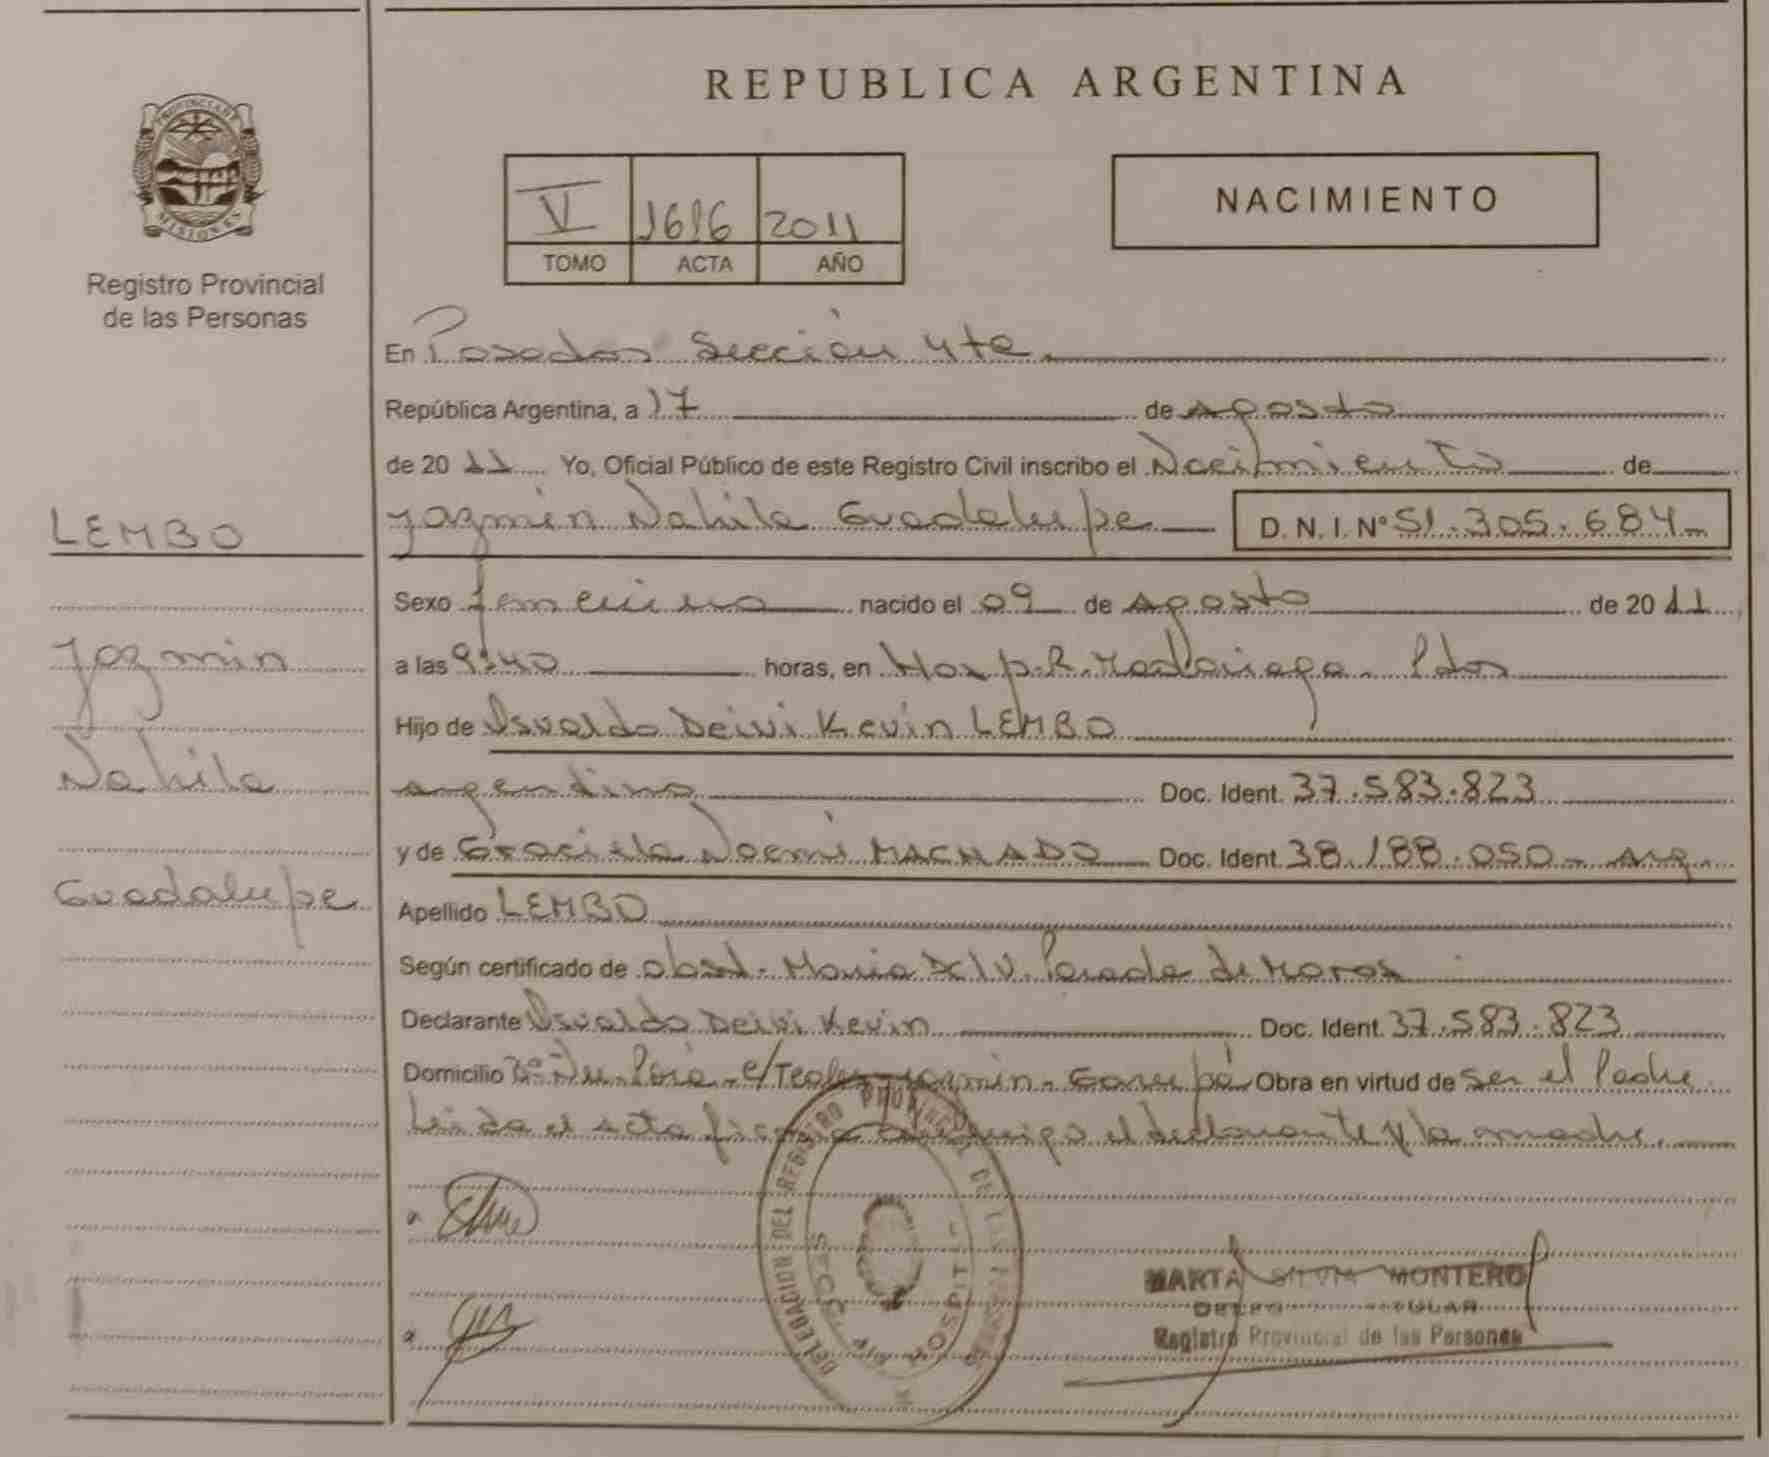 REPUBLICA ARGENTINA
PROVINCIA DE
MISIONES
Registro Provincial
de las Personas
V 1616 2011
TOMO ACTA AÑO
NACIMIENTO
En Posadas Sección 4ta
República Argentina, a 17 de Agosto
de 2011 Yo, Oficial Público de este Registro Civil inscribo el Nacimiento de
Yazmin Nahila Guadalupe D. N. I. Nº 51.305.684
Sexo femenino nacido el 09 de Agosto de 2011
a las 9:40 horas, en Hosp. R. Madariaga - Pdas
Hijo de Osvaldo Deivi Kevin LEMBO
argentino Doc. Ident. 37.583.823
y de Graciela Noemi MACHADO Doc. Ident. 38.188.050 - Arg.
Apellido LEMBO
Según certificado de obst. Maria del V. Parada de
Declarante Osvaldo Deivi Kevin Doc. Ident. 37.583.823
Domicilio Yazmin - Garupá Obra en virtud de ser el Padre
Leida el acta firma conmigo el declarante y la madre.
LEMBO
Yazmin
Nahila
Guadalupe
DELEGACION DEL REGISTRO PROVINCIAL DE LAS PERSONAS
HOSPITAL
MARTA SILVIA MONTERO
TITULAR
Registro Provincial de las Personas